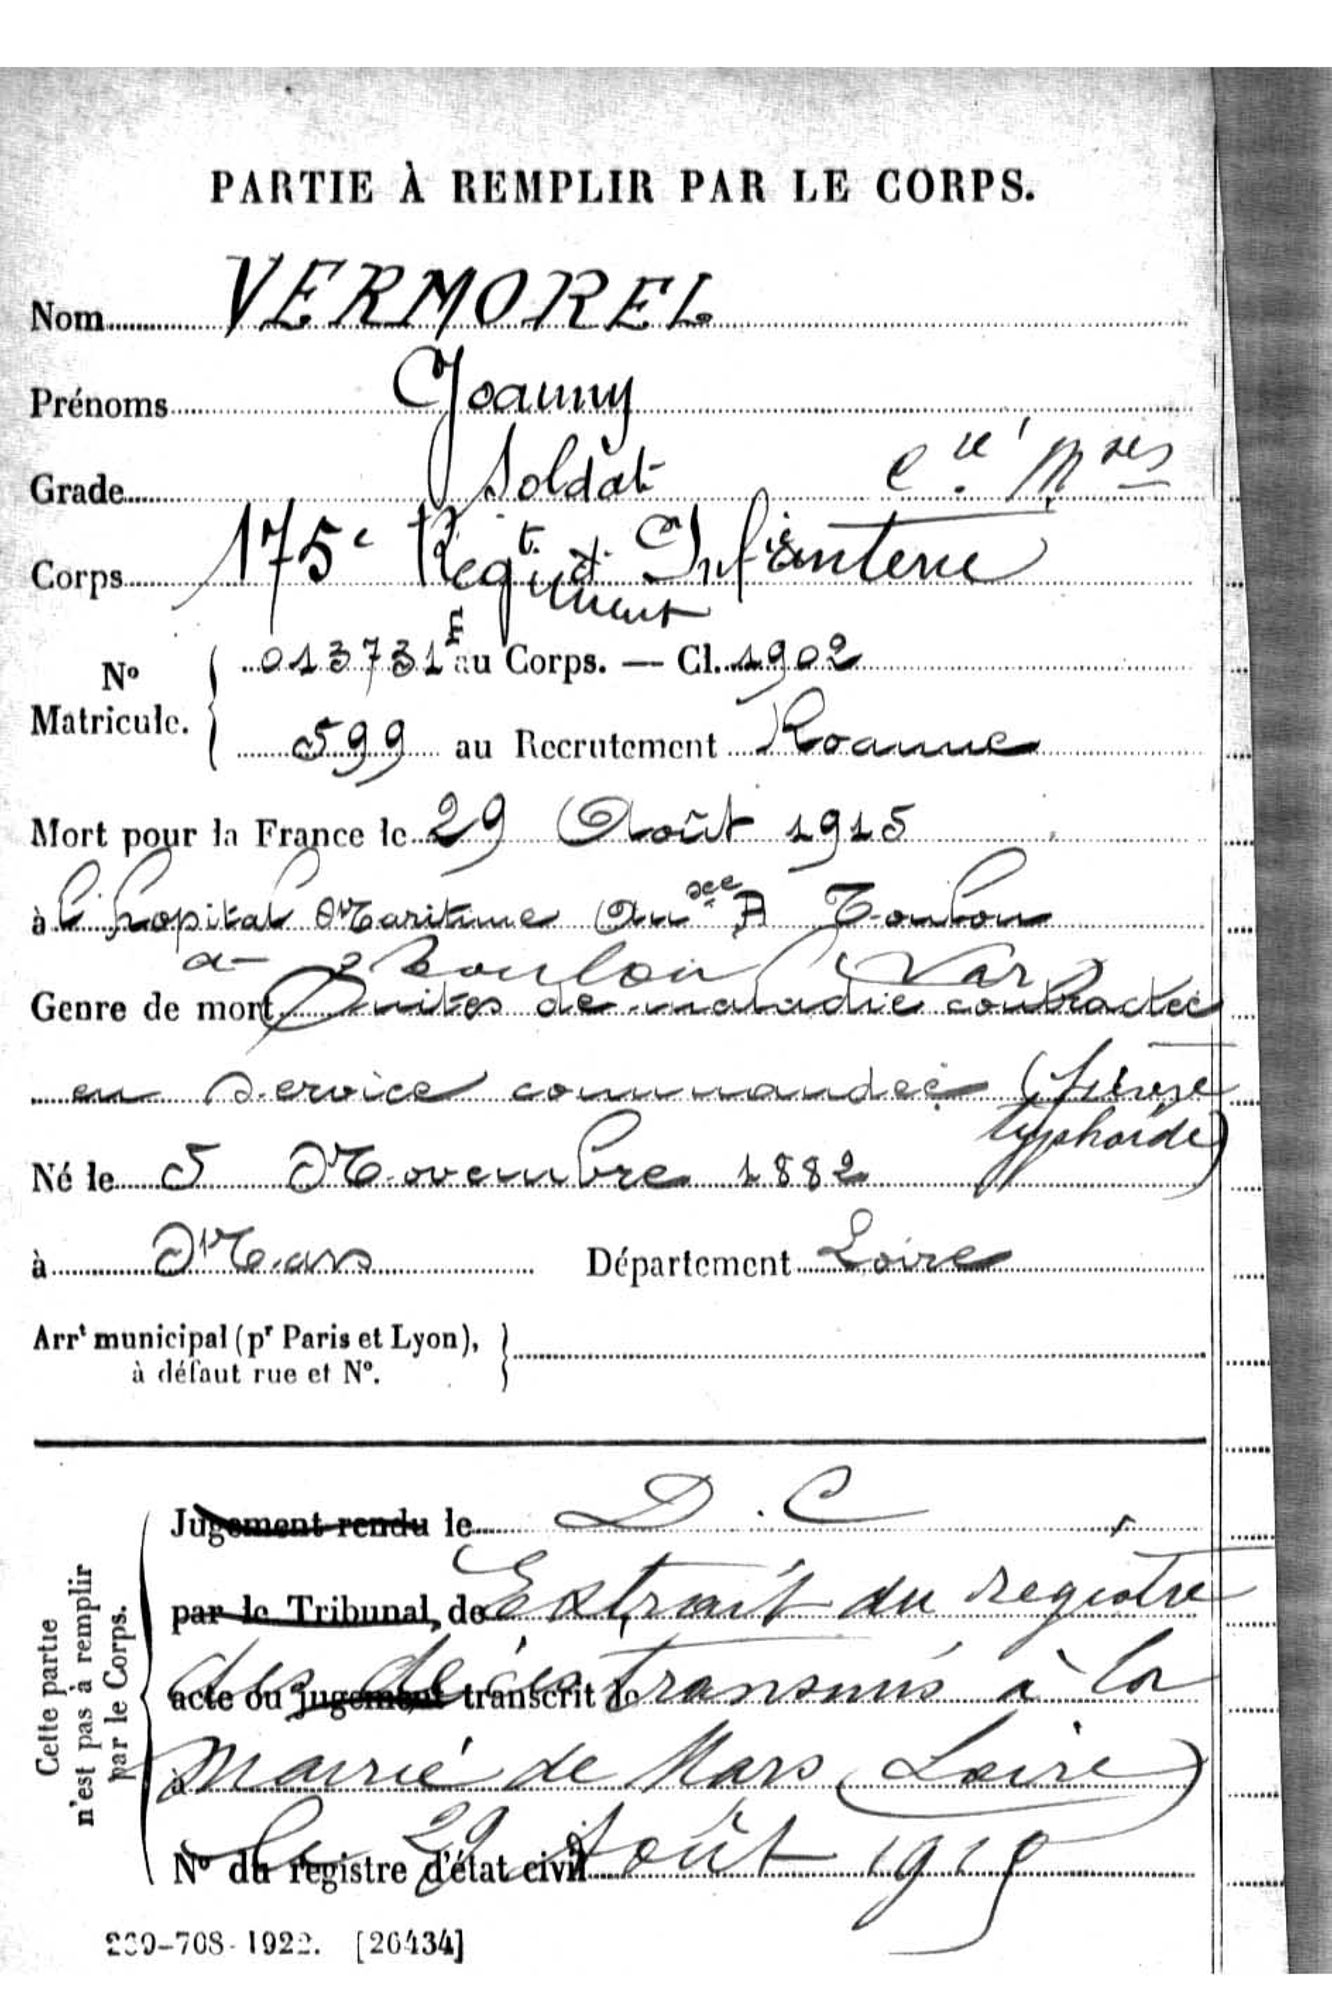 PARTIE À REMPLIR PAR LE CORPS.
Nom VERMOREL
Prénoms Joanny
Grade Soldat Cie Mres
Corps 175e Regt d'Infanterie
Regiment
No Matricule. 013731E au Corps. — Cl. 1902
599 au Recrutement Roanne
Mort pour la France le 29 Août 1915
à l'hopital Maritime Anxee A Toulon
a Toulon (Var)
Genre de mort Suites de maladie contractée
en service commandée (fièvre
typhoïde)
Né le 5 Novembre 1882
à Mars Département Loire
Arrt municipal (pr Paris et Lyon),
à défaut rue et No.
Cette partie
n'est pas à remplir
par le Corps.
Jugement rendu le D. C
par le Tribunal, de Extrait du registre
acte ou jugement transcrit le des décès transmis à la
à Mairie de Mars (Loire)
No du registre d'état civil le 29 Août 1915
-708-1922. [26434]